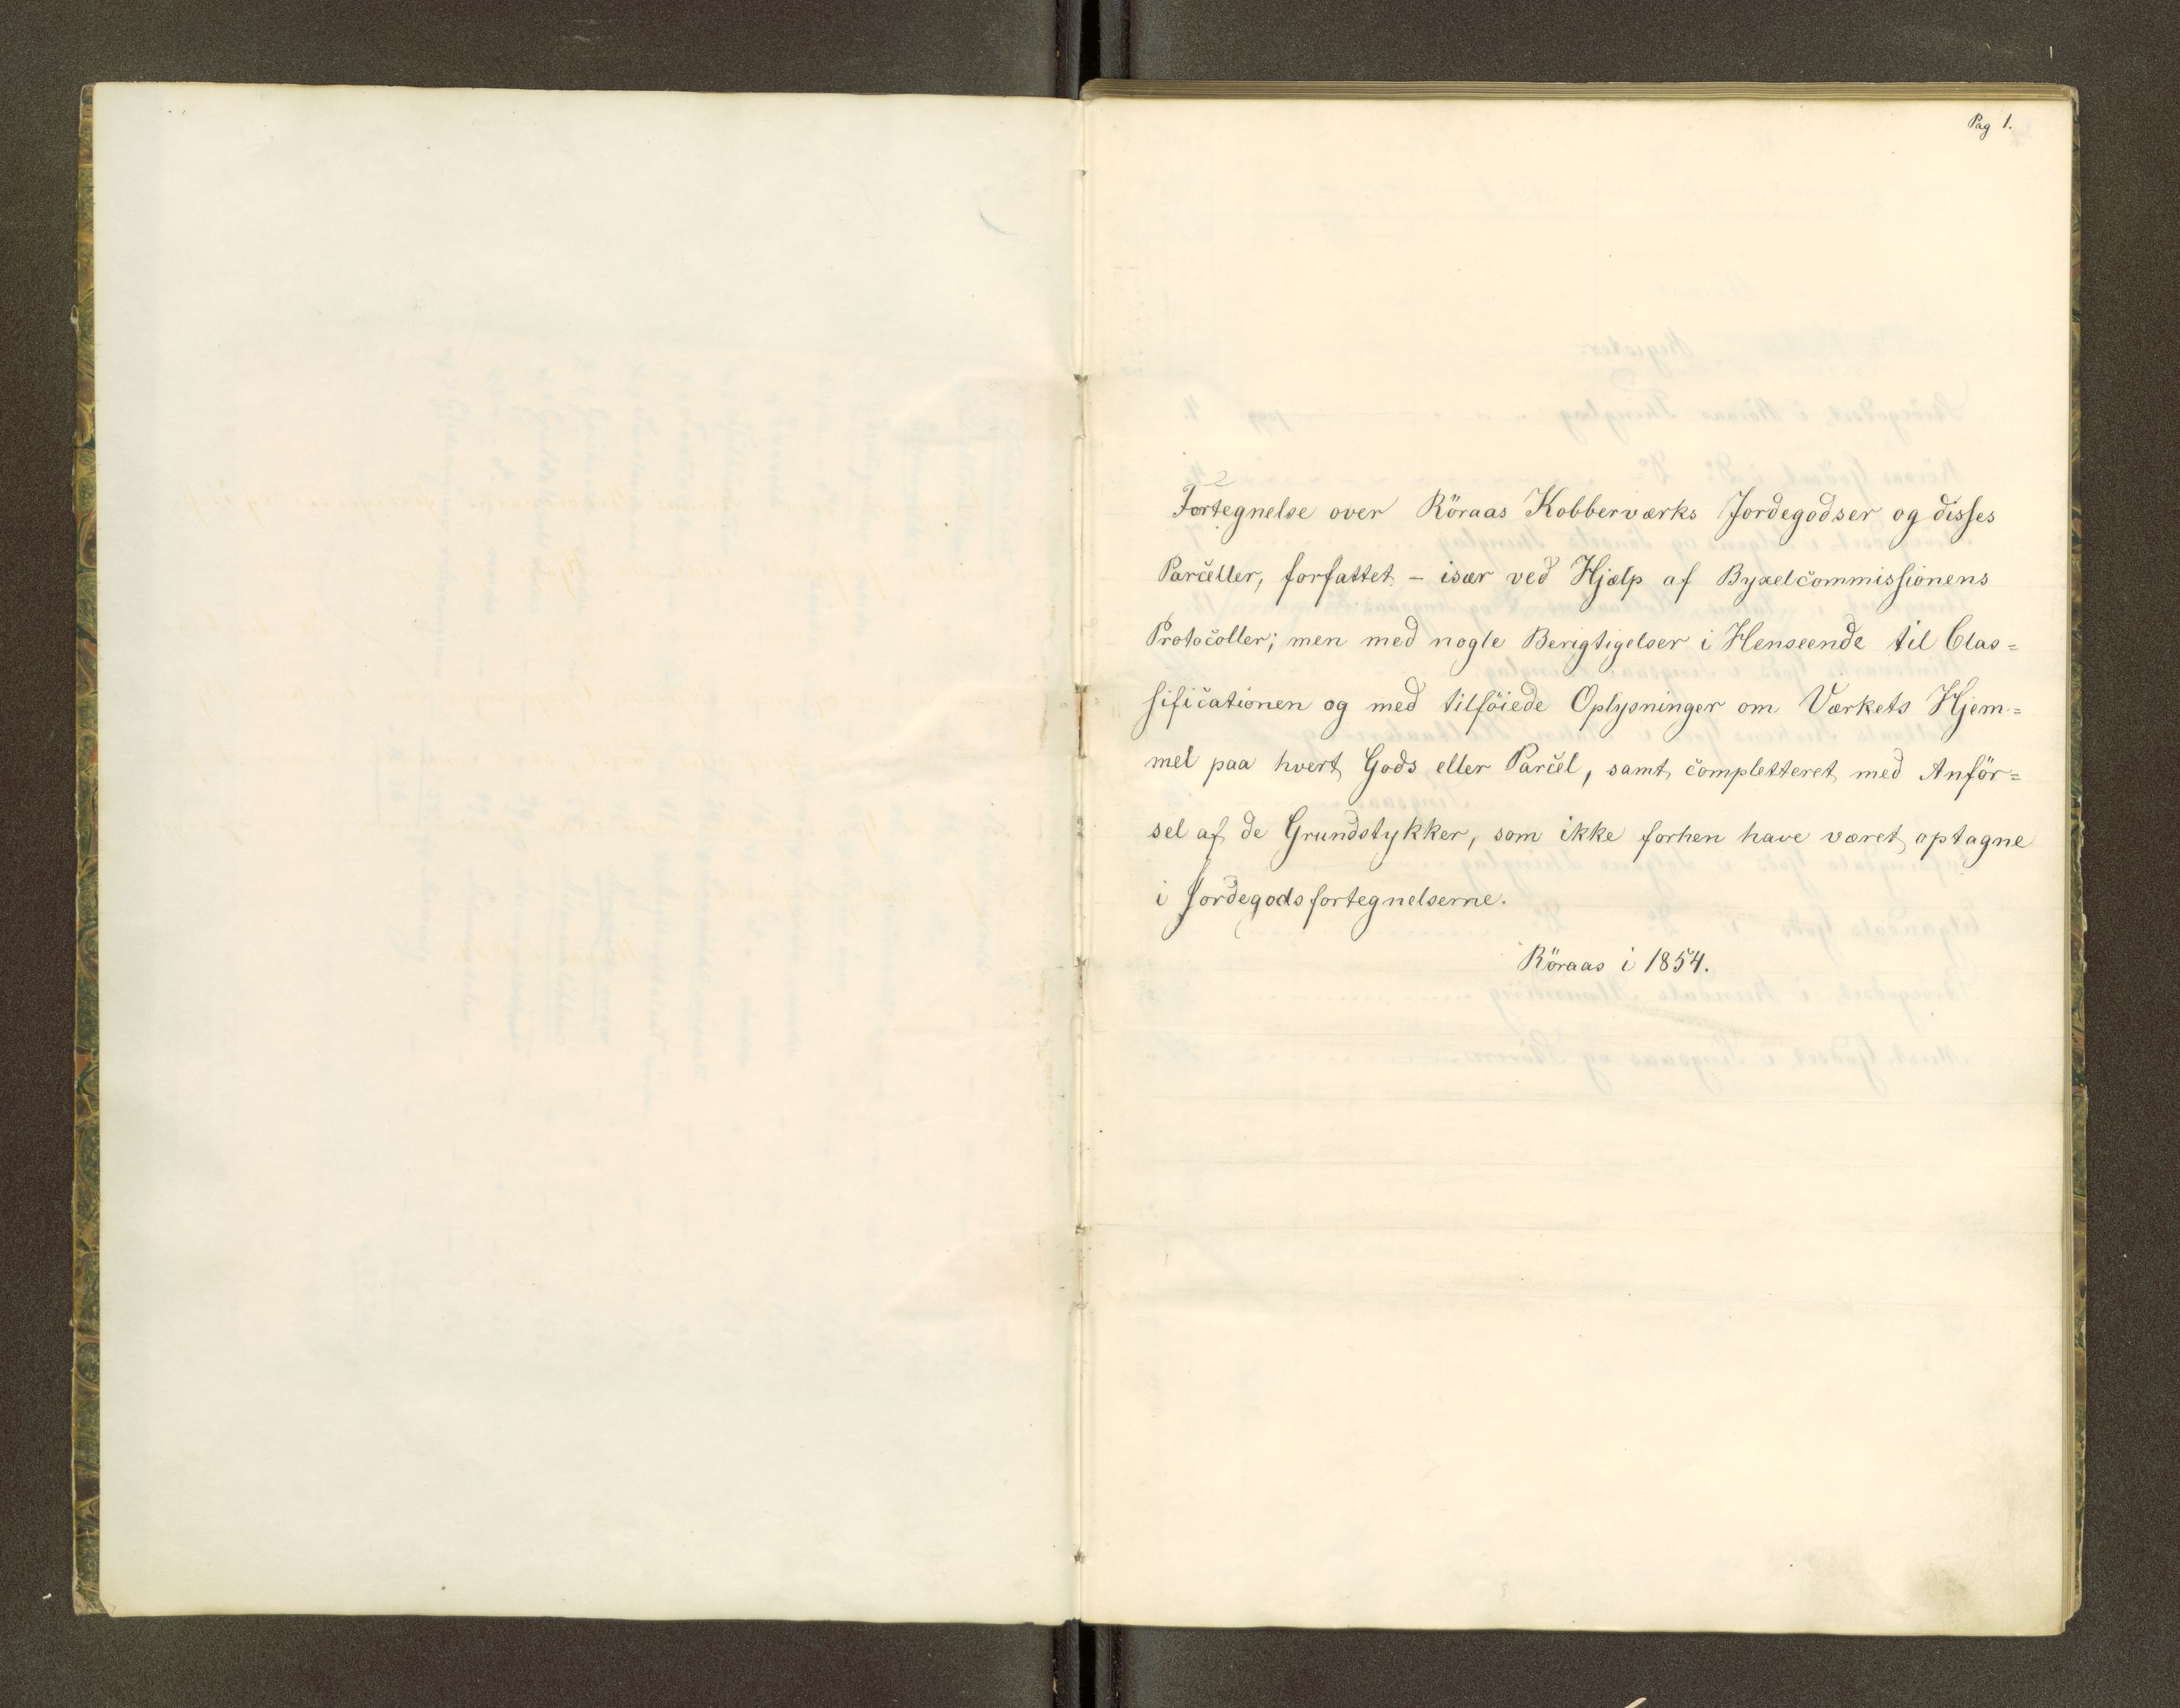 Pag 1.
Fortegnelse over Röraas Kobberværks Jordegodser og disses
Parceller, forfattet - især ved Hjælp af Byxelcommissionens
Protocoller; men med nogle Berigtigelser i Henseende til Clas=
sificationen og med tilföiede Oplysninger om Værkets Hjem=
mel paa hvert Gods eller Parcel, samt completteret med Anför=
sel af de Grundstykker, som ikke forhen have været optagne
i Jordegodsfortegnelserne.
Röraas i 1854.